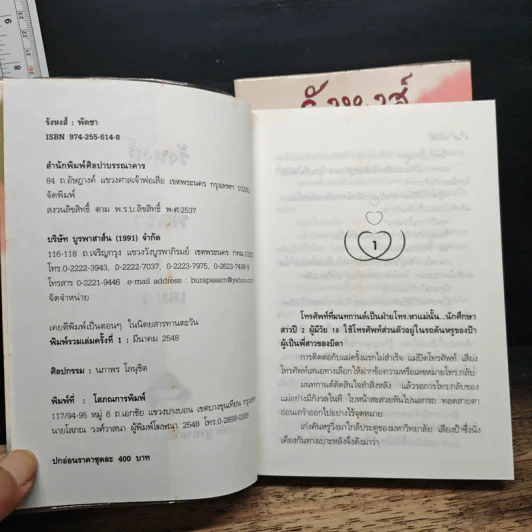 รังหงส์ : พัดชา
ISBN 974-255-614-8
สำนักพิมพ์ศิลปาบรรณาคาร
84 ถ.อัษฎางค์ แขวงศาลเจ้าพ่อเสือ เขตพระนคร กรุงเทพฯ 10200
จัดพิมพ์
สงวนลิขสิทธิ์ ตาม พ.ร.บ.ลิขสิทธิ์ พ.ศ.2537
บริษัท บูรพาสาส์น (1991) จำกัด
116-118 ถ.เจริญกรุง แขวงวังบูรพาภิรมย์ เขตพระนคร กทม.10200
โทร.0-2222-3943, 0-2222-7037, 0-2223-7975, 0-2623-7436-9
โทรสาร 0-2221-9446 e-mail address : burapasarn@yahoo.com
จัดจำหน่าย
เคยตีพิมพ์เป็นตอนๆ ในนิตยสารทานตะวัน
พิมพ์รวมเล่มครั้งที่ 1 : มีนาคม 2548
ศิลปกรรม : นภาพร โลนุชิต
พิมพ์ที่ : โสภณการพิมพ์
117/94-95 หมู่ 6 ถ.เอกชัย แขวงบางบอน เขตบางขุนเทียน กรุงเทพฯ
นายโสภณ วงศ์วาสนา ผู้พิมพ์ผู้โฆษณา 2548 โทร.0-2899-0008
ปกอ่อนราคาชุดละ 400 บาท
รังหงส์
1
โทรศัพท์ที่มนทกานต์เป็นฝ่ายโทร.หาแม่นั้น...นักศึกษา
สาวปี 2 ผู้มีวัย 18 ใช้โทรศัพท์ส่วนตัวอยู่ในรถคันหรูของป้า
ผู้เป็นพี่สาวของบิดา
การติดต่อกับแม่ครั้งแรกไม่สำเร็จ แม่ปิดโทรศัพท์ เสียง
โทรศัพท์เสนอทางเลือกให้ฝากข้อความหรือเลขหมายโทร.กลับ
มนทกานต์ตัดสินใจทำสิ่งหลัง แล้วรอการโทร.กลับของ
แม่อย่างมีกังวลในที ใบหน้าสะสวยหันไปนอกรถ ทอดสายตา
อ่อนเศร้าออกไปอย่างไร้จุดหมาย
เก๋งคันหรูวิ่งมาใกล้ประตูของมหาวิทยาลัย เสียงป้าซึ่งนั่ง
เคียงกันทางเบาะหลังจึงดังมาว่า